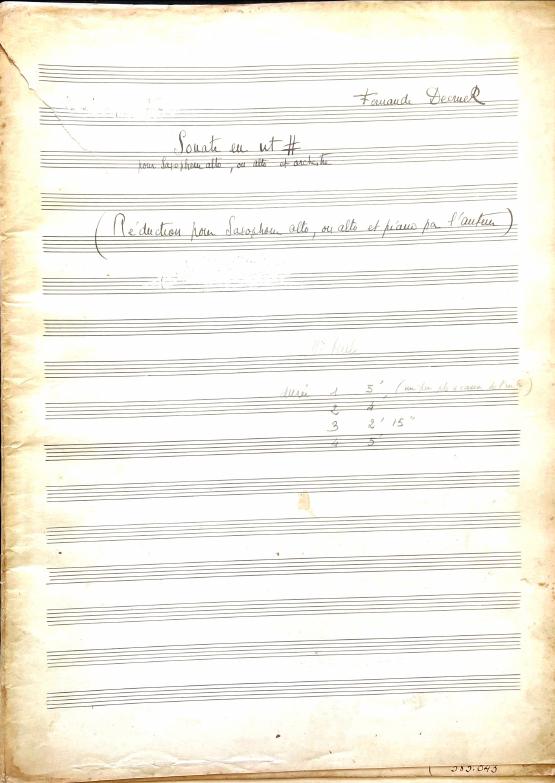 Fernande Decruck
Sonate en ut #
pour Saxophone alto, ou alto et orchestre
(Réduction pour Saxophone alto, ou alto et piano par l'auteur)
durée 1 5' (un peu
2 4'
3 2' 15"
4 5'